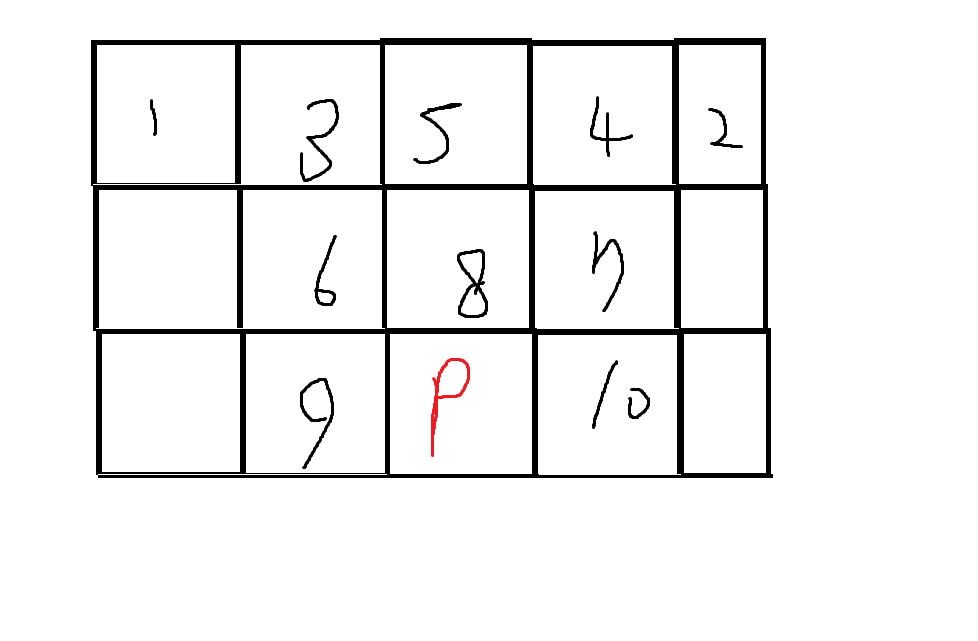 1 3 5 4 2
6 8 7
9 P 10